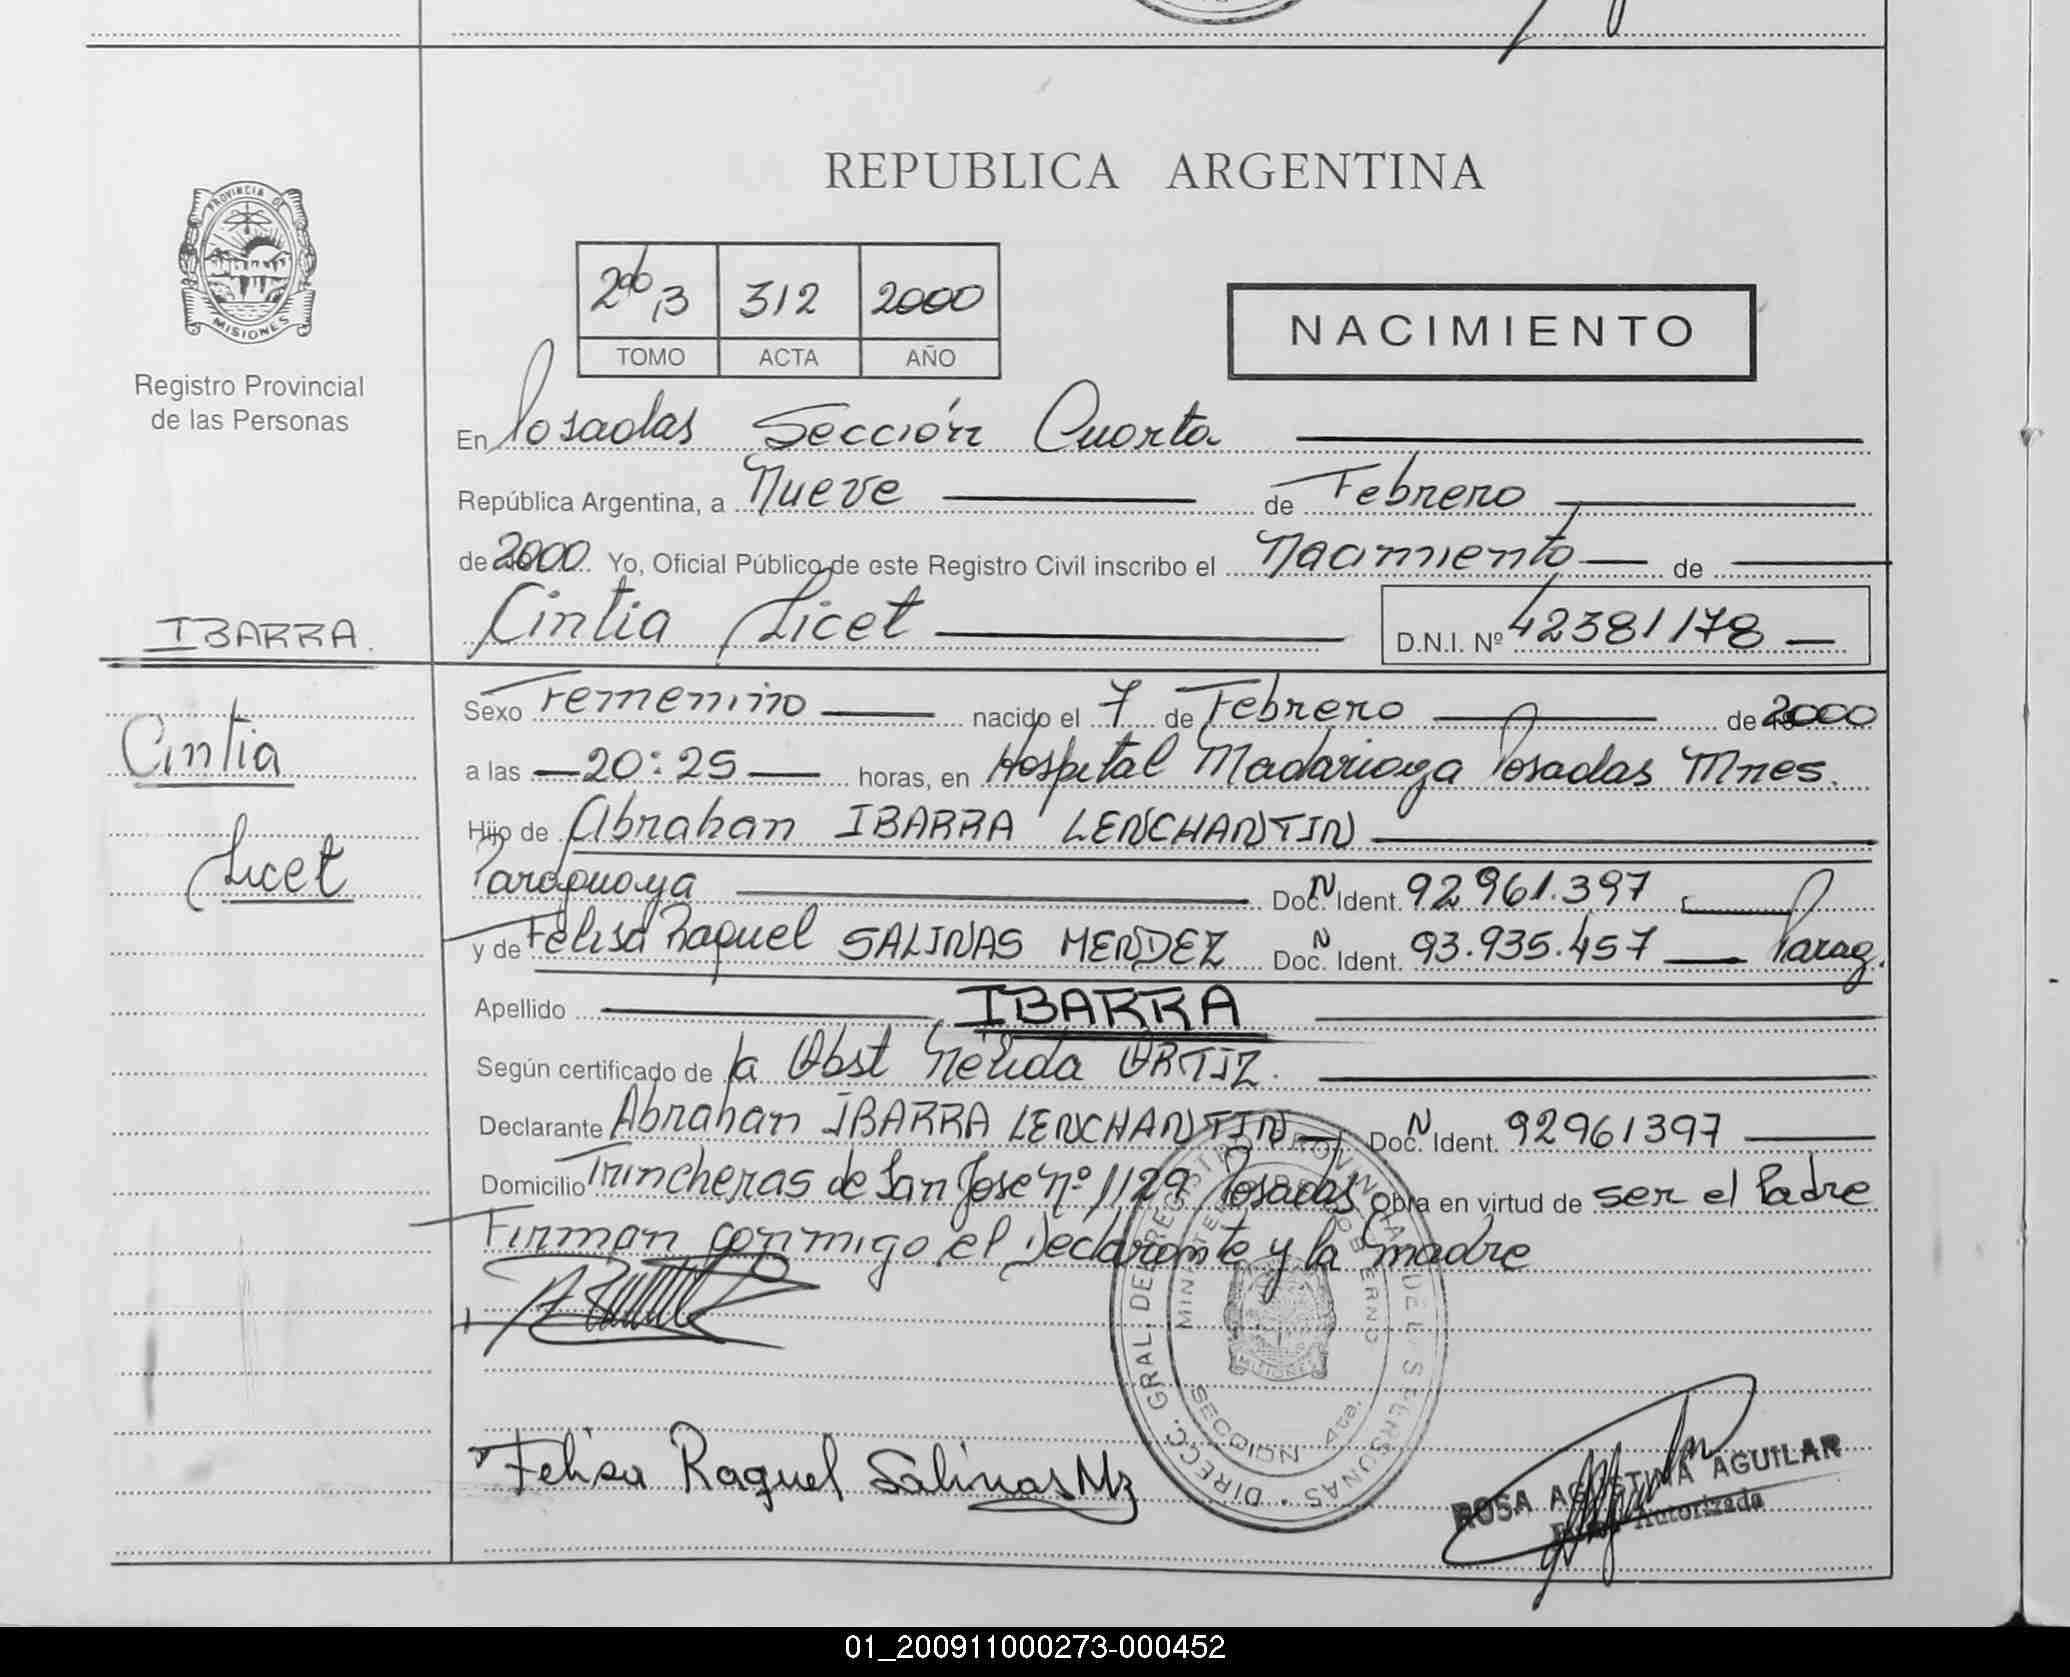 REPUBLICA ARGENTINA
PROVINCIA DE
MISIONES
Registro Provincial
de las Personas
312 2000
TOMO ACTA AÑO
NACIMIENTO
En Posadas Sección Cuarta
República Argentina, a Nueve de Febrero
de 2000. Yo, Oficial Público de este Registro Civil inscribo el Nacimiento de
Cintia Licet D.N.I. Nº 42381178
IBARRA.
Cintia
Licet
Sexo Femenino nacido el 7 de Febrero de 2000
a las 20:25 horas, en Hospital Madariaga Posadas Mnes.
Hijo de Abrahan IBARRA LENCHANTIN
Paraguaya Doc. N Ident. 92961.397
y de Felisa Raquel SALINAS MENDEZ Doc. N Ident. 93.935.457 Parag.
Apellido IBARRA
Según certificado de la Obst Nélida ORTIZ.
Declarante Abrahan IBARRA LENCHANTIN Doc. N Ident. 92961397
Domicilio Trincheras de San José Nº 1129 Posadas Obra en virtud de ser el Padre
Firman conmigo el Declarante y la madre
DIRECC. GRAL. DEL REGISTRO PROVINCIAL DE LAS PERSONAS
MINISTERIO DE GOBIERNO
SECCION 4ta.
Felisa Raquel Salinas Mz
ROSA AGUSTINA AGUILAR
Autorizada
01_200911000273-000452